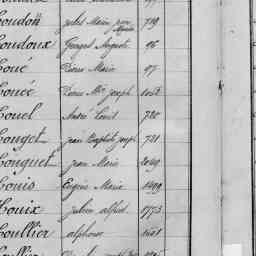 Loudon Jules Marie 719
Loudoux Georges Auguste 96
Loué Pierre Marie 97
Louée Pierre Mie Joseph
Louel André Louis 720
Louget Jean Baptiste Joseph 721
Louguet Jean Marie 2049
Louis Eugène Marie 1499
Louix Julien Alfred 1773
Loullier Alphonse 1401